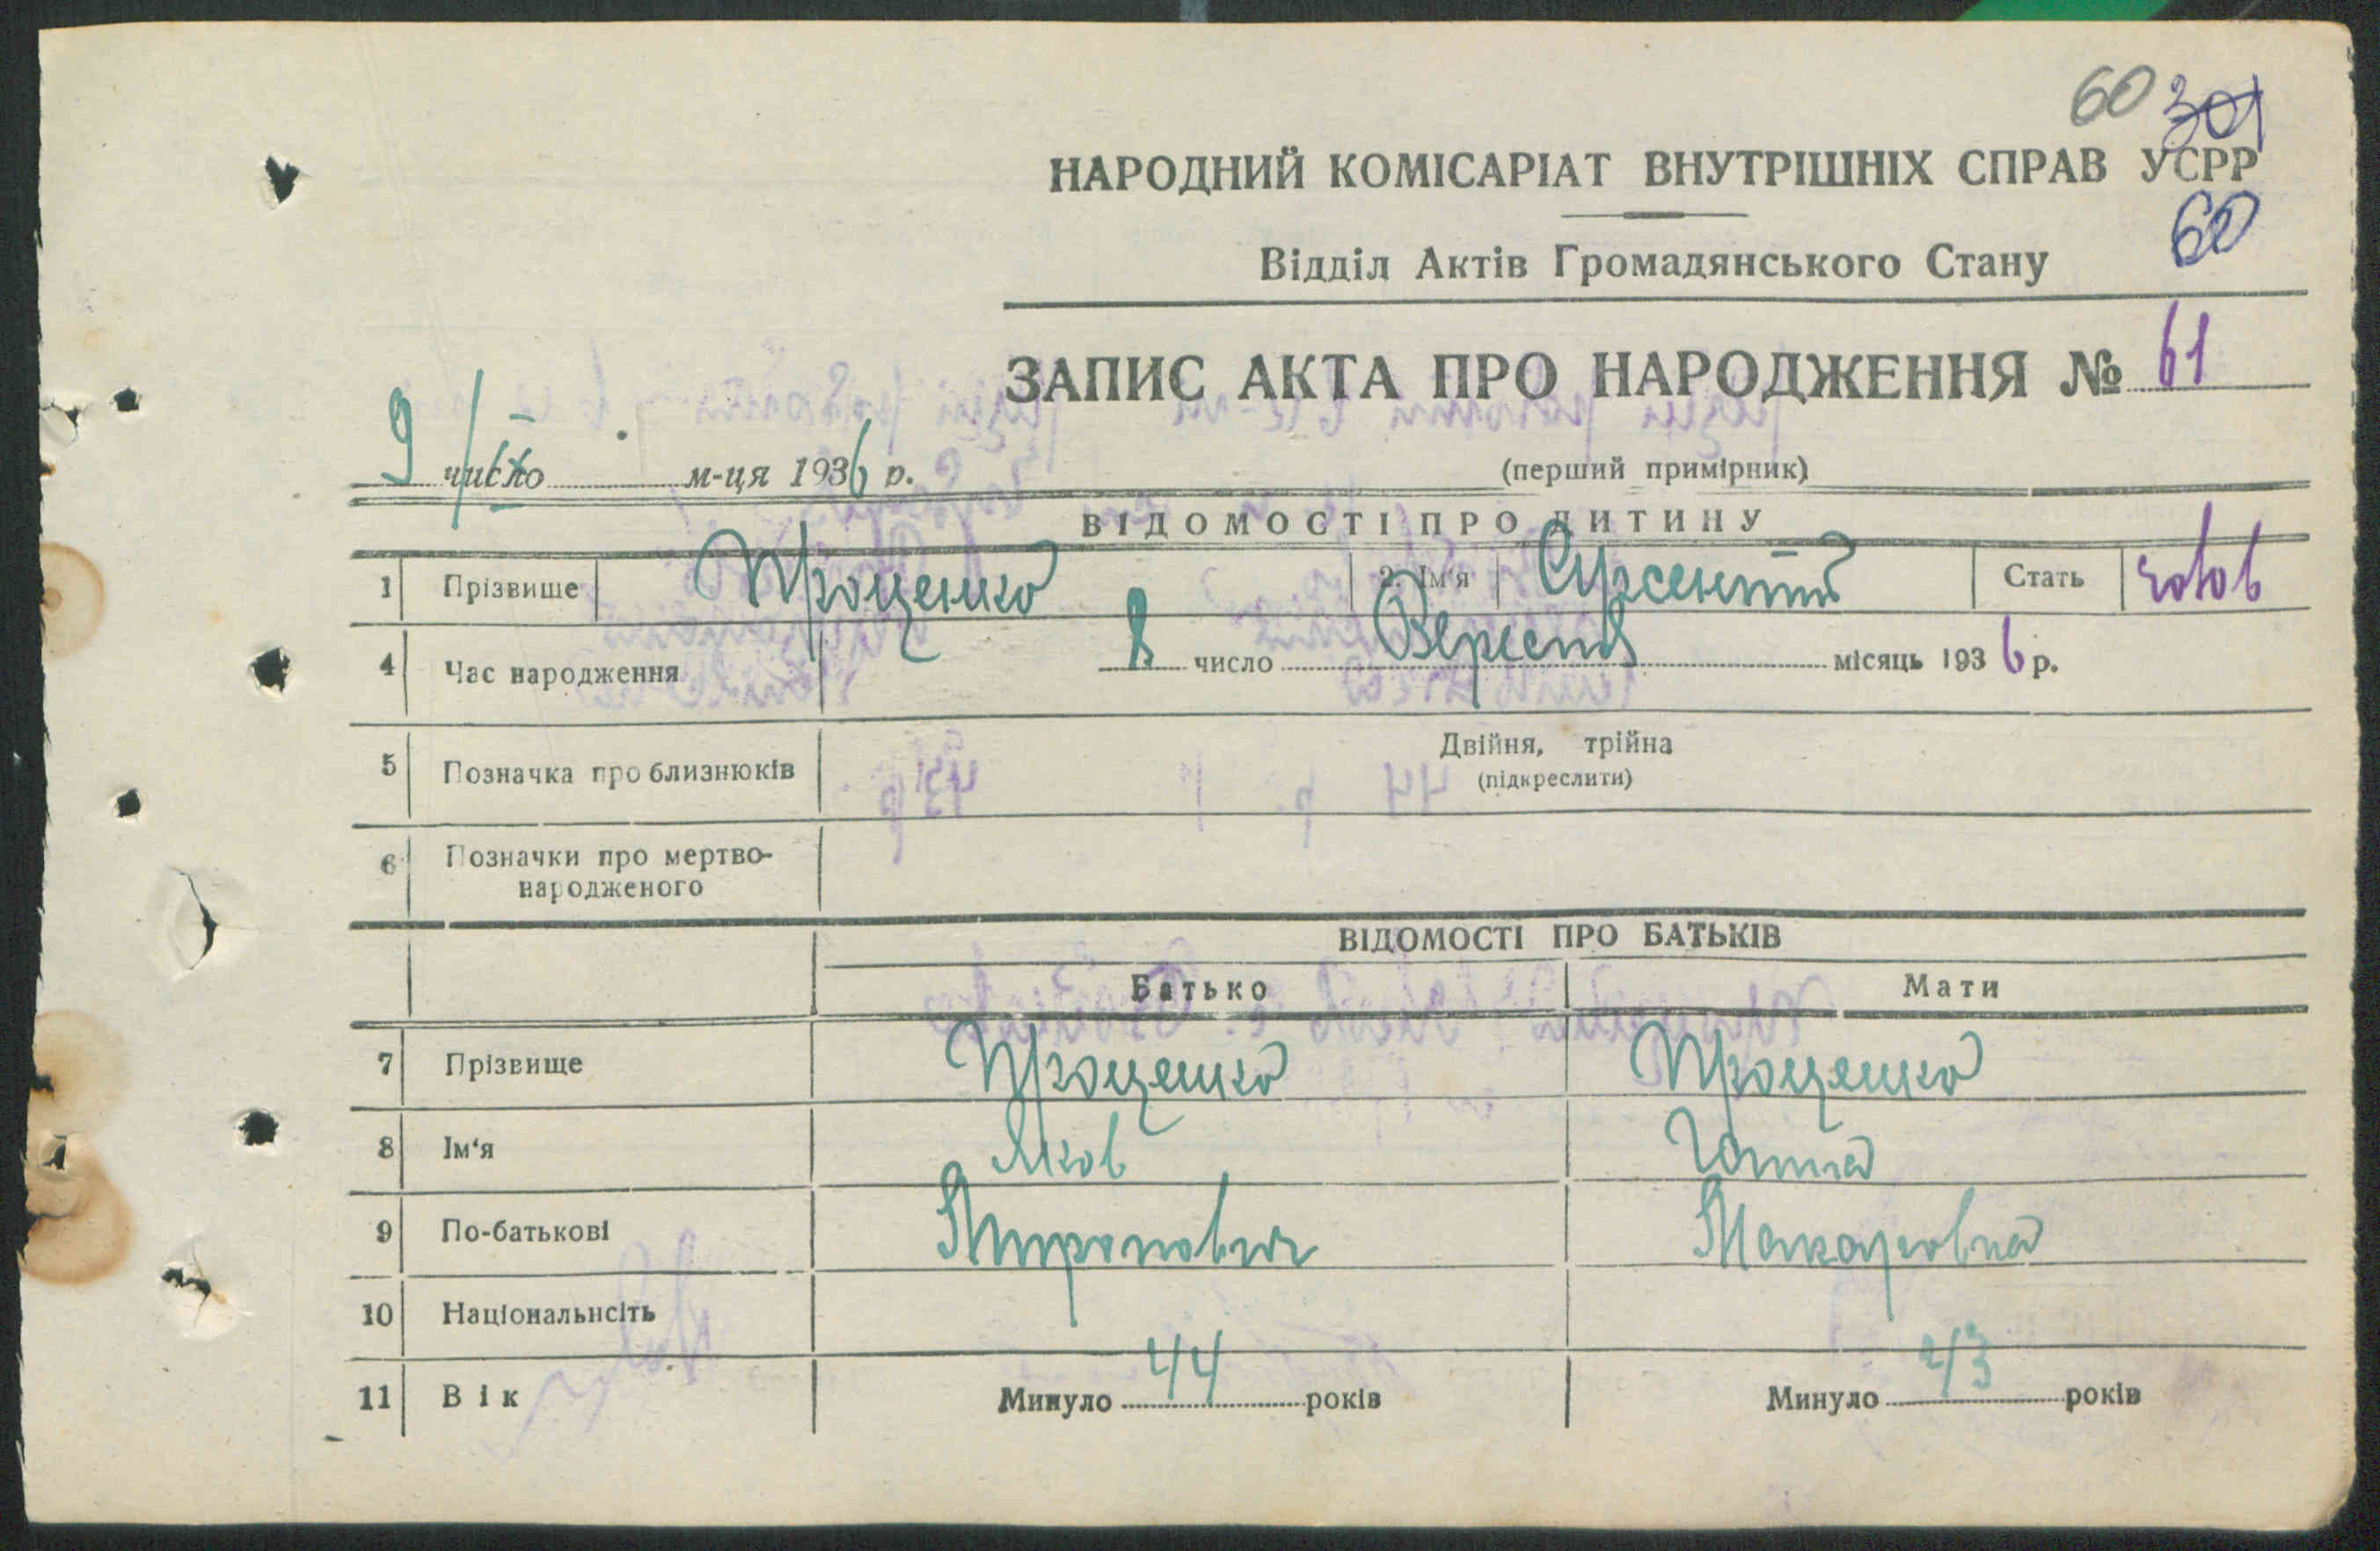 60 301
НАРОДНИЙ КОМІСАРІАТ ВНУТРІШНІХ СПРАВ УСРР
60
Відділ Актів Громадянського Стану
ЗАПИС АКТА ПРО НАРОДЖЕННЯ № 61
9 / ІХ число м-ця 1936 р.
(перший примірник)
ВІДОМОСТІ ПРО ДИТИНУ
1 Прізвище Проценко 2. Ім'я Арсентій Стать чолов
4 Час народження 8 число Вересня місяць 1936 р.
5 Позначка про близнюків Двійня, трійна
(підкреслити)
6 Позначки про мертво-
народженого
ВІДОМОСТІ ПРО БАТЬКІВ
Батько Мати
7 Прізвище Проценко Проценко
8 Ім'я Яков Ганна
9 По-батькові Миронович Макаровна
10 Національнсіть
11 Вік Минуло 44 років Минуло 43 років